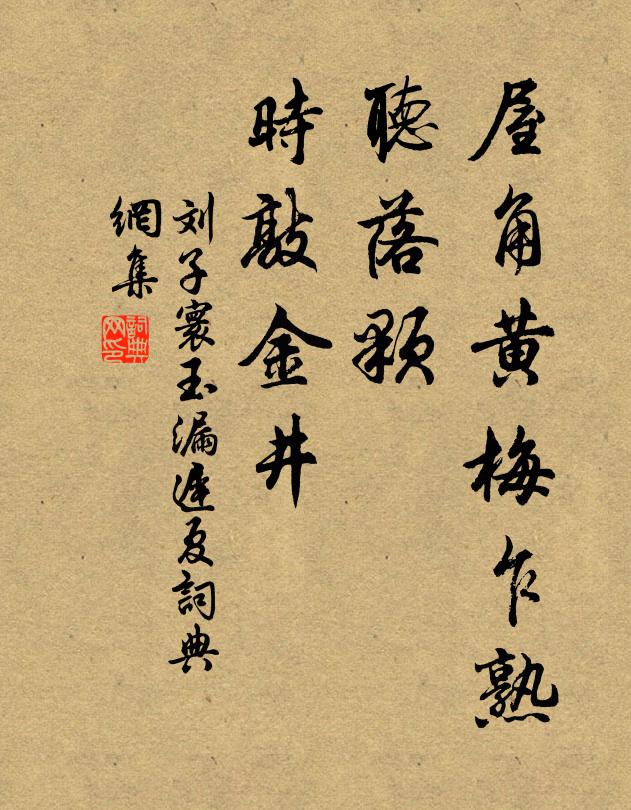 屋角黃梅乍熟
聽落顆
時敲金井
刘子寰玉漏遲夏詞典
網集
詞典
网印